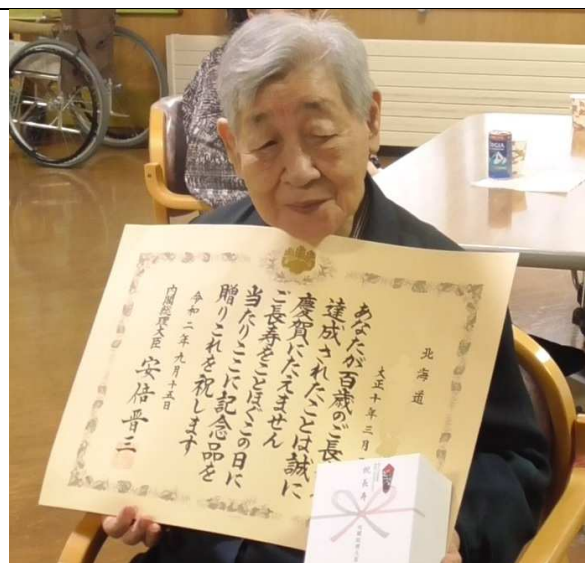 北海道
大正十年三月
あなたが百歳のご長
達成されたことは誠に
慶賀にたえません
ご長寿をことほぐこの日に
当たりここに記念品を
贈りこれを祝します
令和二年九月十五日
内閣総理大臣 安倍晋三
祝長寿
内閣総理大臣